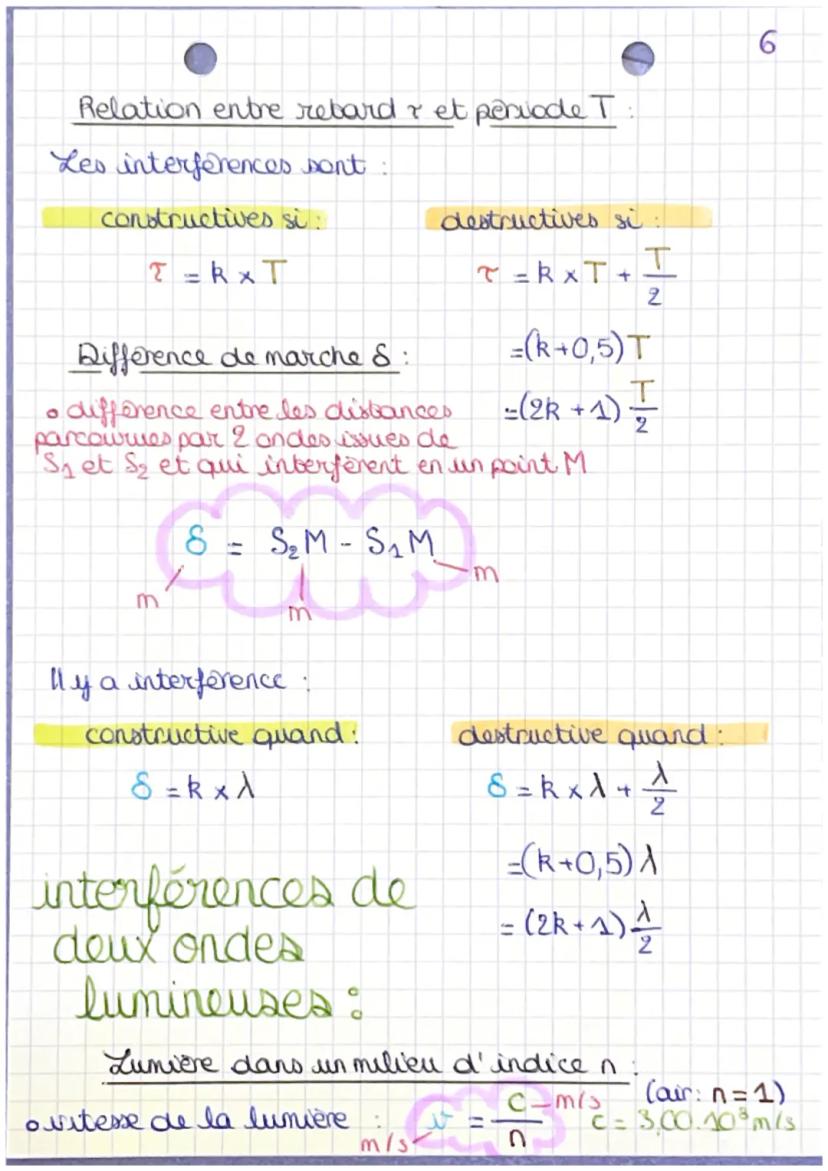 6
Relation entre retard τ et période T :
Les interférences sont :
constructives si :
τ = k × T
destructives si :
τ = k × T + T/2
=(k+0,5)T
=(2k+1) T/2
Différence de marche δ :
• différence entre les distances
parcourues par 2 ondes issues de
S₁ et S₂ et qui interfèrent en un point M
δ = S₂M - S₁M
m
m
m
Il y a interférence :
constructive quand :
δ = k × λ
destructive quand :
δ = k × λ + λ/2
=(k+0,5)λ
= (2k+1) λ/2
interférences de
deux ondes
lumineuses :
Lumière dans un milieu d'indice n :
(air: n=1)
• vitesse de la lumière : v = c/n
m/s
m/s
c = 3,00.10⁸ m/s